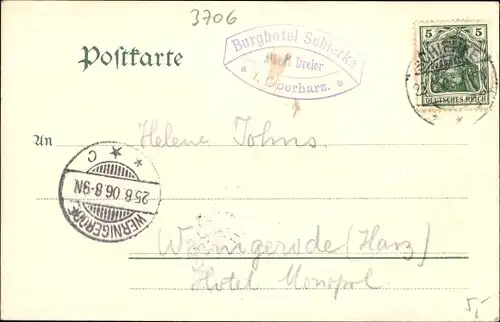 3706
Postkarte
Burghotel Schierke
Albert Dreier
i. Oberharz.
5 5
DEUTSCHES REICH
An
Helene Johns
WERNIGERODE
25.8.06.8-9N.
C
Wernigerode (Harz)
Hotel Monopol
5,-